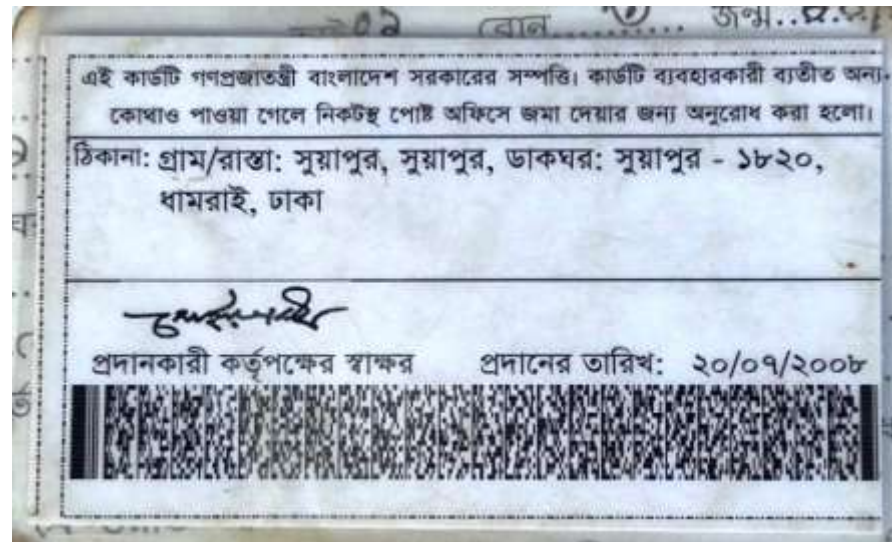 বোন
জন্ম..
এই কার্ডটি গণপ্রজাতন্ত্রী বাংলাদেশ সরকারের সম্পত্তি। কার্ডটি ব্যবহারকারী ব্যতীত অন্য
কোথাও পাওয়া গেলে নিকটস্থ পোষ্ট অফিসে জমা দেয়ার জন্য অনুরোধ করা হলো।
ঠিকানা: গ্রাম/রাস্তা: সুয়াপুর, সুয়াপুর, ডাকঘর: সুয়াপুর - ১৮২০,
ধামরাই, ঢাকা
প্রদানকারী কর্তৃপক্ষের স্বাক্ষর প্রদানের তারিখ: ২০/০৭/২০০৮